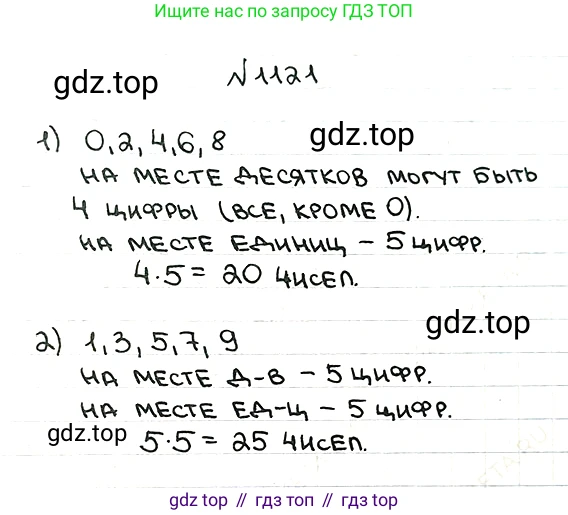 Ищите нас по запросу ГДЗ ТОП
gdz.top
№1121
1) 0,2,4,6,8
gdz.top
НА МЕСТЕ ДЕСЯТКОВ МОГУТ БЫТЬ
4 ЦИФРЫ (ВСЕ, КРОМЕ 0).
НА МЕСТЕ ЕДИНИЦ – 5 ЦИФР.
4·5 = 20 ЧИСЕЛ.
gdz.top
2) 1,3,5,7,9
НА МЕСТЕ Д-В – 5 ЦИФР.
НА МЕСТЕ ЕД-Ц – 5 ЦИФР.
gdz.top
5·5 = 25 ЧИСЕЛ.
gdz top // гдз топ // гдз.top